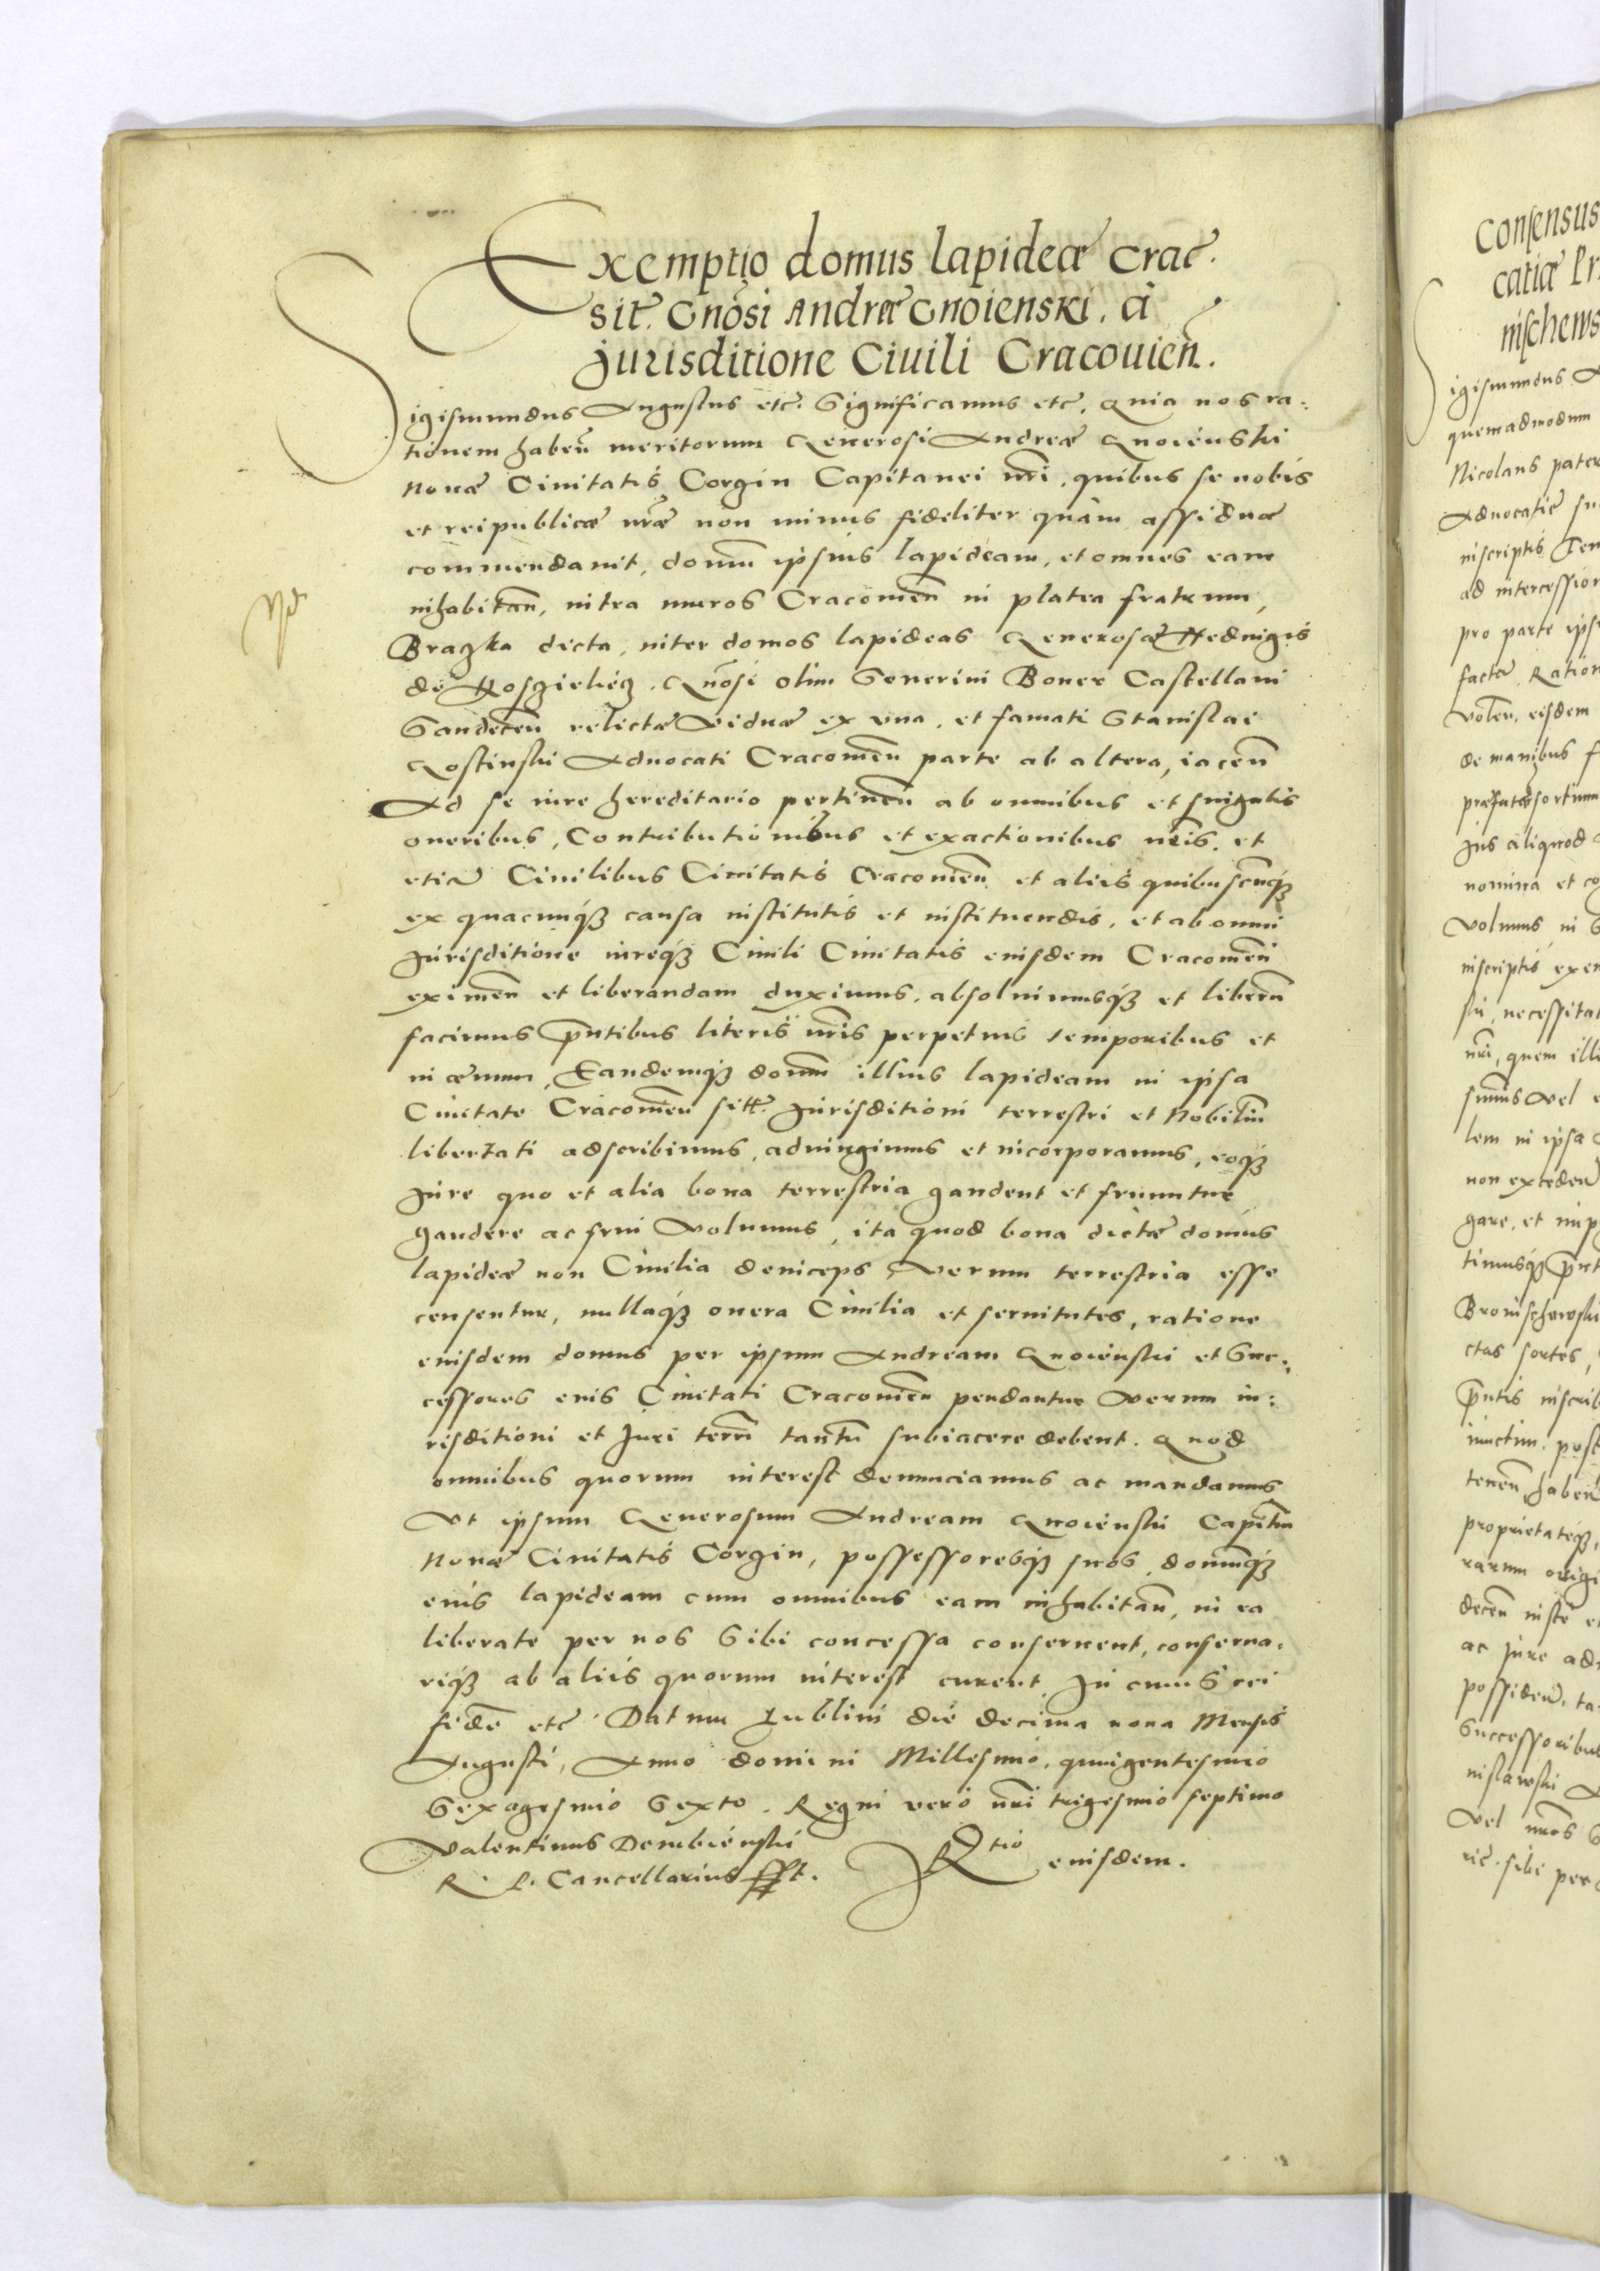 Exemptio domus lapideæ Crac.
sit. Gnosi Andreæ Gnoienski. à
Jurisditione Ciuili Cracouien.
Sigismundus Augustus etc. Significamus etc. Quia nos ra-
tionem haben meritorum Generosi Andreæ Gnoienski
Nouæ Ciuitatis Corgin Capitanei nri, quibus se nobis
et reipublicæ nræ non minus fideliter quàm assiduæ
commendauit, domum ipsius lapideam, et omnes eam
inhabitan, intra muros Cracouien in platea fratrum,
Braczka dicta, inter domos lapideas Generosæ Heduigis
de Kosczieliecz. Gnosi olim Seuerini Boner Castellani
Sandecen relictæ Viduæ ex una, et famati Stanislai
Gostinski Aduocati Cracouien parte ab altera, iacen
Ad se iure hereditario pertinen ab omnibus et singulis
oneribus, Contributionibus et exactionibus nris, et
etia Ciuilibus Ciuitatis Cracouien et aliis quibuscunq3
ex quacunq3 causa institutis et instituendis, et ab omni
Jurisditione iureq3 Ciuili Ciuitatis eiusdem Cracouien
eximen et liberandam duximus, absoluimusq3 et libera
facimus pntibus literis nris perpetuis temporibus et
in æuum, Eandemq3 domum illius lapideam in ipsa
Ciuitate Cracouien sitt. Jurisditioni terrestri et Nobilium
libertati adscribimus, adiungimus et incorporamus, eoq3
Jure quo et alia bona terrestria gaudent et fruuntur
gaudere ac frui Volumus, ita quod bona dictæ domus
lapideæ non Ciuilia deinceps, Verum terrestria esse
censentur, nullaq3 onera Ciuilia et seruitutes, ratione
eiusdem domus per ipsum Andream Gnoienski et Suc-
cessores eius Ciuitati Cracouien pendantur Verum iu-
risditioni et Juri terri tantu subiacere debent. Quod
omnibus quorum interest denunciamus ac mandamus
Vt ipsum Generosum Andream Gnoienski Capitm
Nouæ Ciuitatis Corgin, possessoresq3 suos, domumq3
eius lapideam cum omnibus eam inhabitan, in ea
liberate per nos Sibi concessa conseruent, conserua-
riq3 ab aliis quorum interest curent. In cuius rei
fidē etc Datum Lublini die decima nona Mensis
Augusti, Anno domini Millesimo, quingentesimo
Sexagesimo Sexto. Regni vero nri trigesimo septimo
Valentinus Dembienski
R. P. Cancellarius sst. Rtio eiusdem.
Consensus
catiæ
nischews
igismundus A
quemadmodum
Nicolaus pater
Aduocatie su
inscriptis
ad intercession
pro parte ipsi
facta Ration
Volen, eisdem
de manibus f
præfatas sortium
Jus aliquod
nomina et
Volumus in
inscriptis
ski, necessitat
nri, quem illi
Vel
lem in ipsa
non exceden
gare, et imp
timusq3 pnt
Bronischewski
ctas sortes,
pntis inscrib
post
tenen, haben
proprietateq3,
rarum origi
decen
ac Jure adu
possiden, ta
Successoribus
nislawski
Vel
sibi per